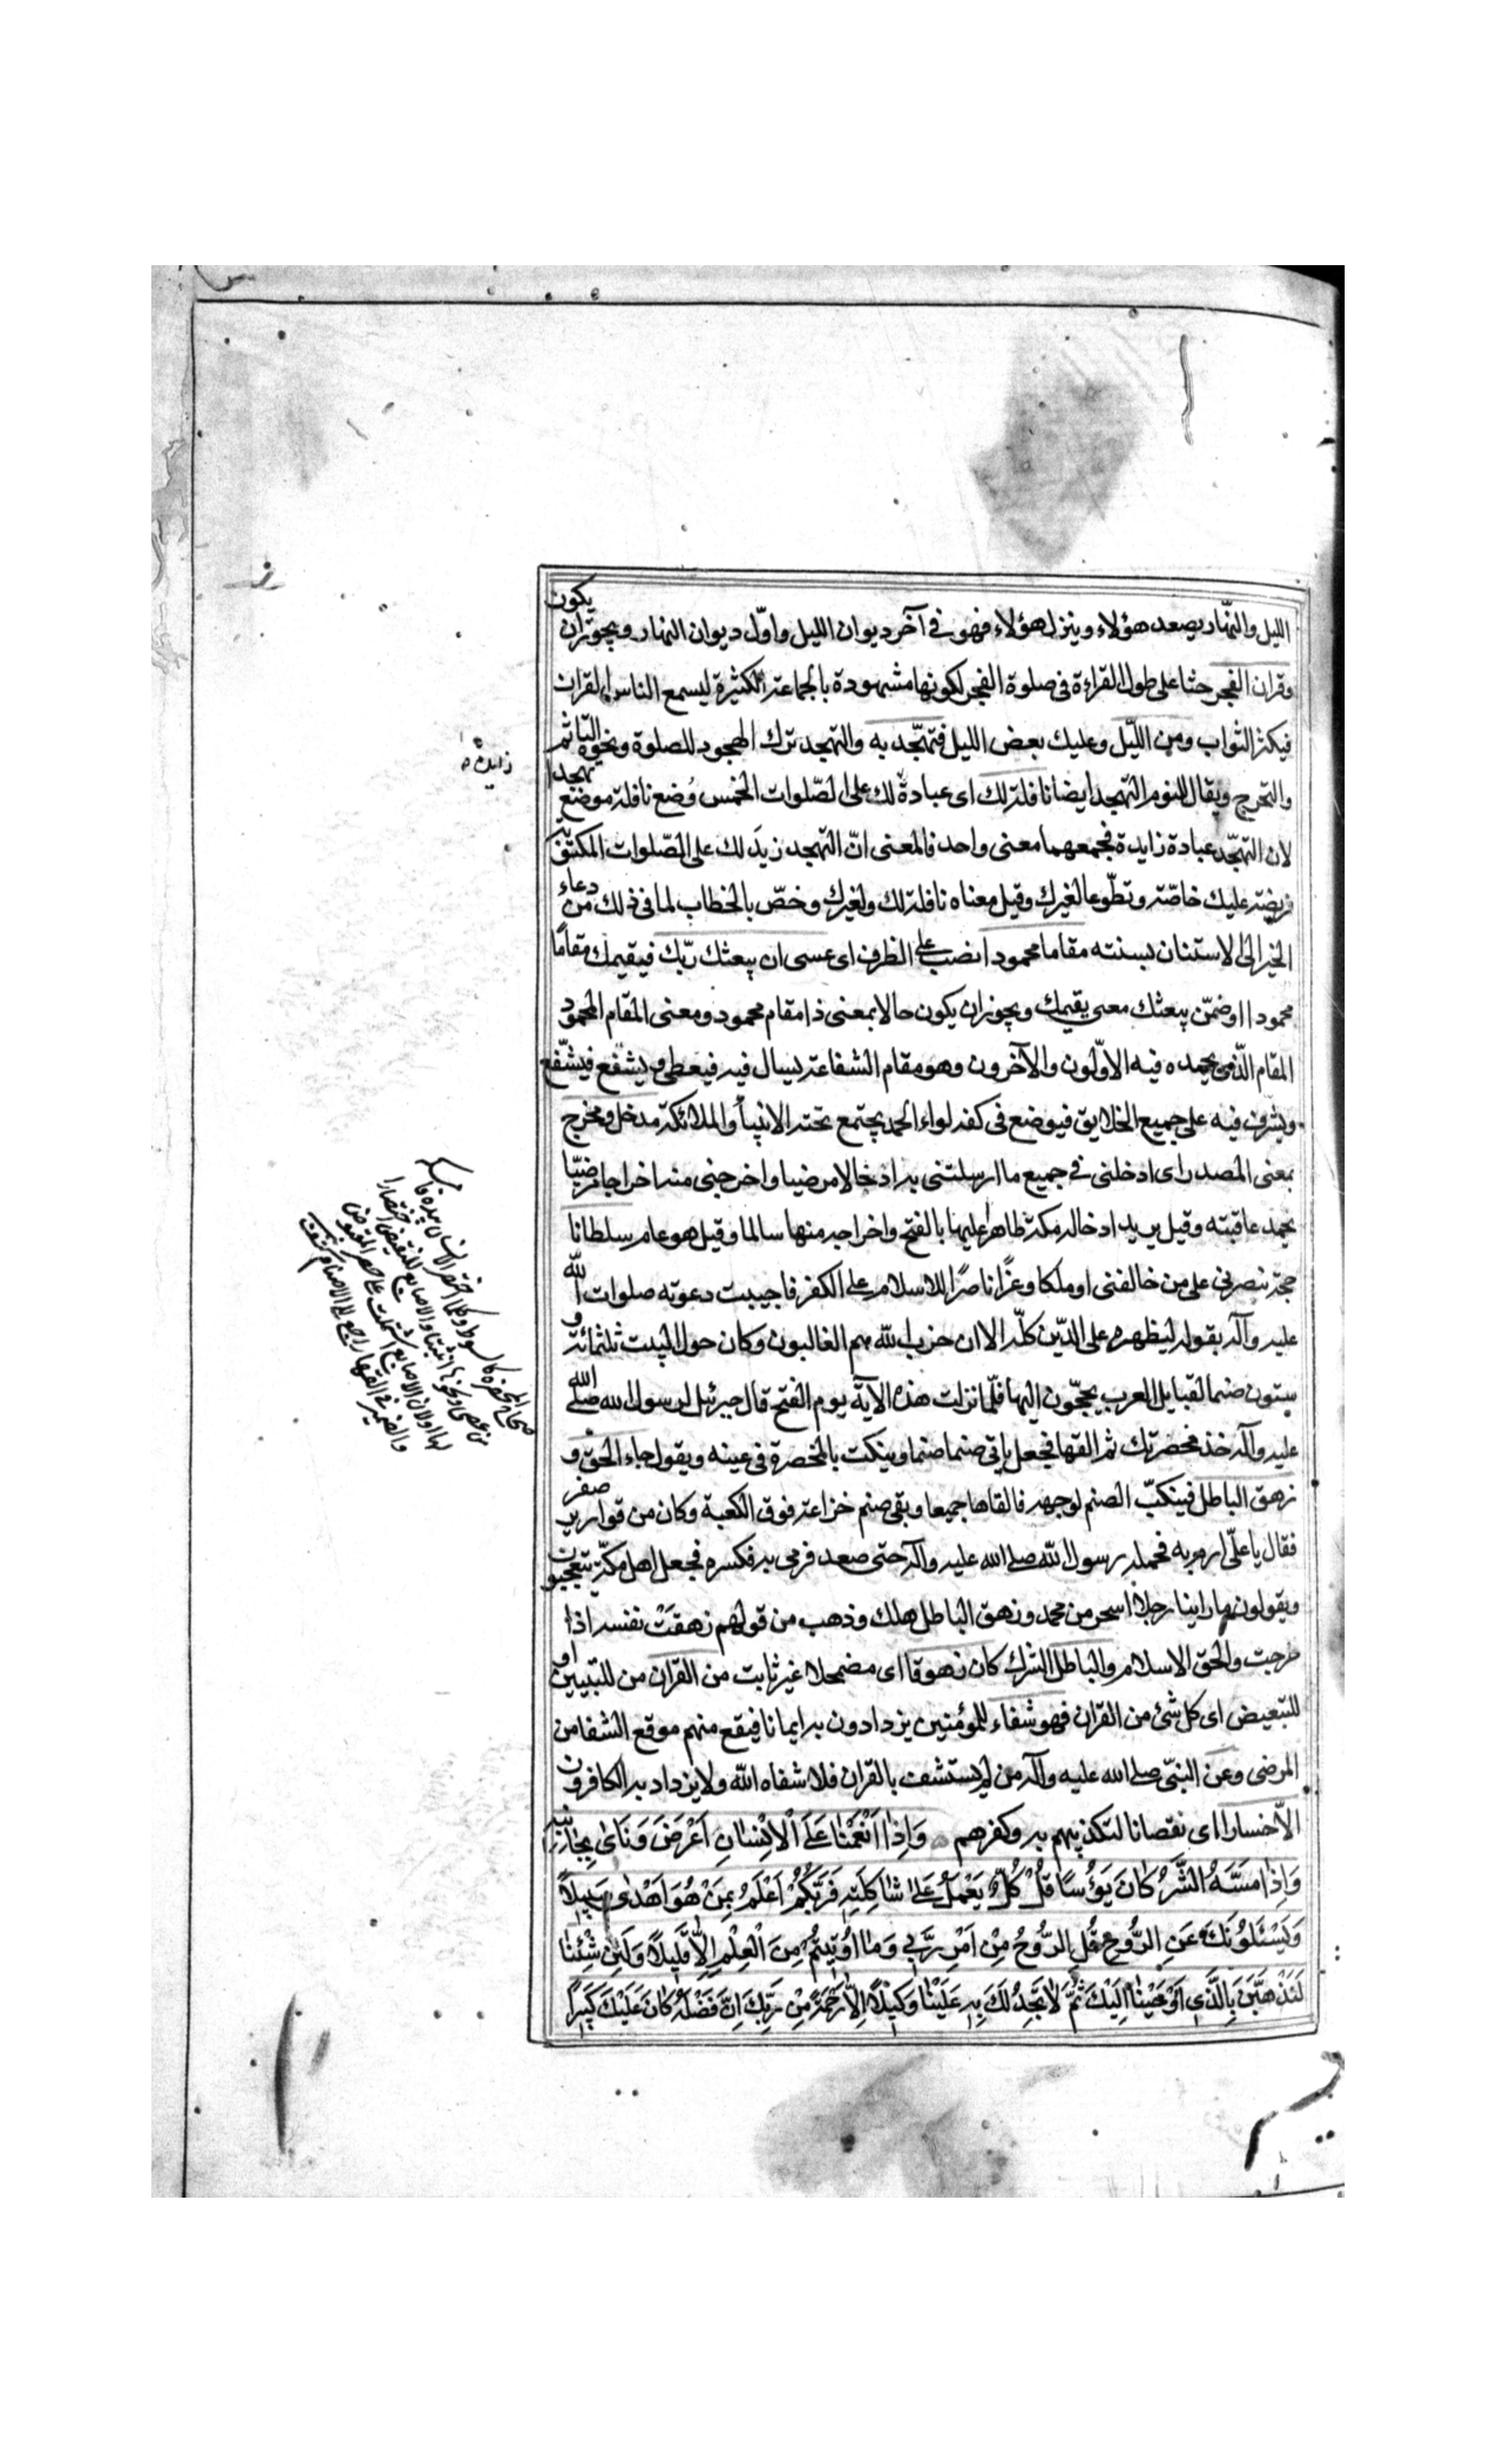 الليل والنّهار يصعد هؤلاء وينزل هؤلاء فهو في آخر ديوان الليل واوّل ديوان النهار ويجوز ان يكون
وقران الفجر حثا على طول القراءة في صلوة الفجر لكونها مشهودة بالجماعة الكثيرة ليسمع الناس القران
فيكثر الثواب ومن اللّيل وعليك بعض الليل فتهجّد به والتهجد ترك الهجود للصلوة ونحوه التاثم
والتحرج ويقال للنوم التهجد ايضا نافلة لك اى عبادة لك على الصّلوات الخمس وُضع نافلة موضع تهجدا
لان التهجّد عبادة زايدة فجمعهما معنى واحد فالمعنى انّ التهجد زيدَ لك على الصّلوات المكتوبة
فريضة عليك خاصّة وتطوعا لغيرك وقيل معناه نافلة لك ولغيرك وخصّ بالخطاب لما في ذلك من دعاء
الخير الى الاستنان بسنته مقاما محمودا نصب على الظرف اى عسى ان يبعثك ربّك فيقيمك مقامًا
محمودا او ضمّن يبعثك معنى يقيمك ويجوز ان يكون حالا بمعنى ذا مقام محمود ومعنى المقام المحمود
المقام الّذى يحمده فيه الاوّلون والآخرون وهو مقام الشفاعة يسال فيه فيعطى ويشفع فيشفّع
ويشرف فيه على جميع الخلايق فيوضع في كفه لواء الحمد يجتمع تحته الانبياء والملائكة مدخل ومخرج
بمعنى المصدر اى ادخلنى في جميع ما ارسلتنى به ادخالا مرضيا واخرجنى منه اخراجا مرضيّا
يحمد عاقبته وقيل يريد ادخاله مكة ظاهرا عليها بالفتح واخراجه منها سالما وقيل هو عام سلطانا
حجة تنصرنى على من خالفنى او ملكا وعزًّا ناصرًا للاسلام على الكفر فاجيبت دعوته صلوات الله
عليه وآله بقوله ليظهره على الدّين كلّه الا ان حزب الله هم الغالبون وكان حول البيت ثلثمائة و
ستون صنما لقبايل العرب يحجّون اليها فلمّا نزلت هذه الآية يوم الفتح قال جبرئيل لرسول الله صلى الله
عليه وآله خذ مخصرتك ثم القها فجعل ياتى صنما صنما وينكت بالمخصرة في عينه ويقول جاء الحق و
زهق الباطل فينكبّ الصنم لوجهه فالقاها جميعا وبقى صنم خزاعة فوق الكعبة وكان من قوارير صفر
فقال يا علّى ارم به فحمله رسول الله صلى الله عليه وآله حتى صعد فرمى به فكسره فجعل اهل مكّة يتعجبون
ويقولون ما راينا رجلا اسحر من محمد وزهق الباطل هلك وذهب من قولهم زهقَتْ نفسه اذا
خرجت والحق الاسلام والباطل الشرك كان زهوقا اى مضمحلا غير ثابت من القران من للتبيين او
للتبعيض اى كل شئ من القران فهو شفاء للمؤمنين يزدادون به ايمانا فيقع منهم موقع الشفا من
المرضى وعن النبىّ صلى الله عليه وآله من لم يستشف بالقران فلا شفاه الله ولا يزداد به الكافرون
الاّ خسارا اى نقصانا لتكذيبهم به وكفرهم وَاِذٰا اَنْعَمْنٰا عَلَى الْاِنْسٰانِ اَعْرَضَ وَنَاىٰ بِجٰانِبِهِ
وَاِذٰا مَسَّهُ الشَّرُّ كٰانَ يَؤُسًا قُلْ كُلٌّ يَعْمَلُ عَلىٰ شٰاكِلَتِهِ فَرَبُّكُمْ اَعْلَمُ بِمَنْ هُوَ اَهْدىٰ سَبيلًا
وَيَسْئَلُونَكَ عَنِ الرُّوحِ قُلِ الرُّوحُ مِنْ اَمْرِ رَبّي وَمٰا اُوتيتُمْ مِنَ الْعِلْمِ اِلّٰا قَليلًا وَلَئِنْ شِئْنٰا
لَنَذْهَبَنَّ بِالَّذي اَوْحَيْنٰا اِلَيْكَ ثُمَّ لٰا تَجِدُ لَكَ بِهِ عَلَيْنٰا وَكيلًا اِلّٰا رَحْمَةً مِنْ رَبِّكَ اِنَّ فَضْلَهُ كٰانَ عَلَيْكَ كَبيرًا
زايدة